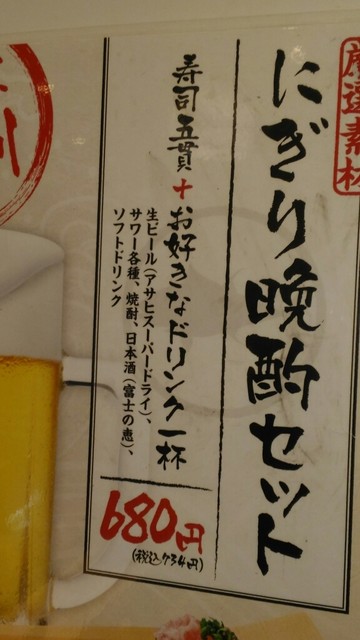 厳選素材
にぎり晩酌セット
寿司五貫+お好きなドリンク一杯
生ビール(アサヒスーパードライ)、
サワー各種、焼酎、日本酒(富士の恵)、
ソフトドリンク
680円
(税込734円)